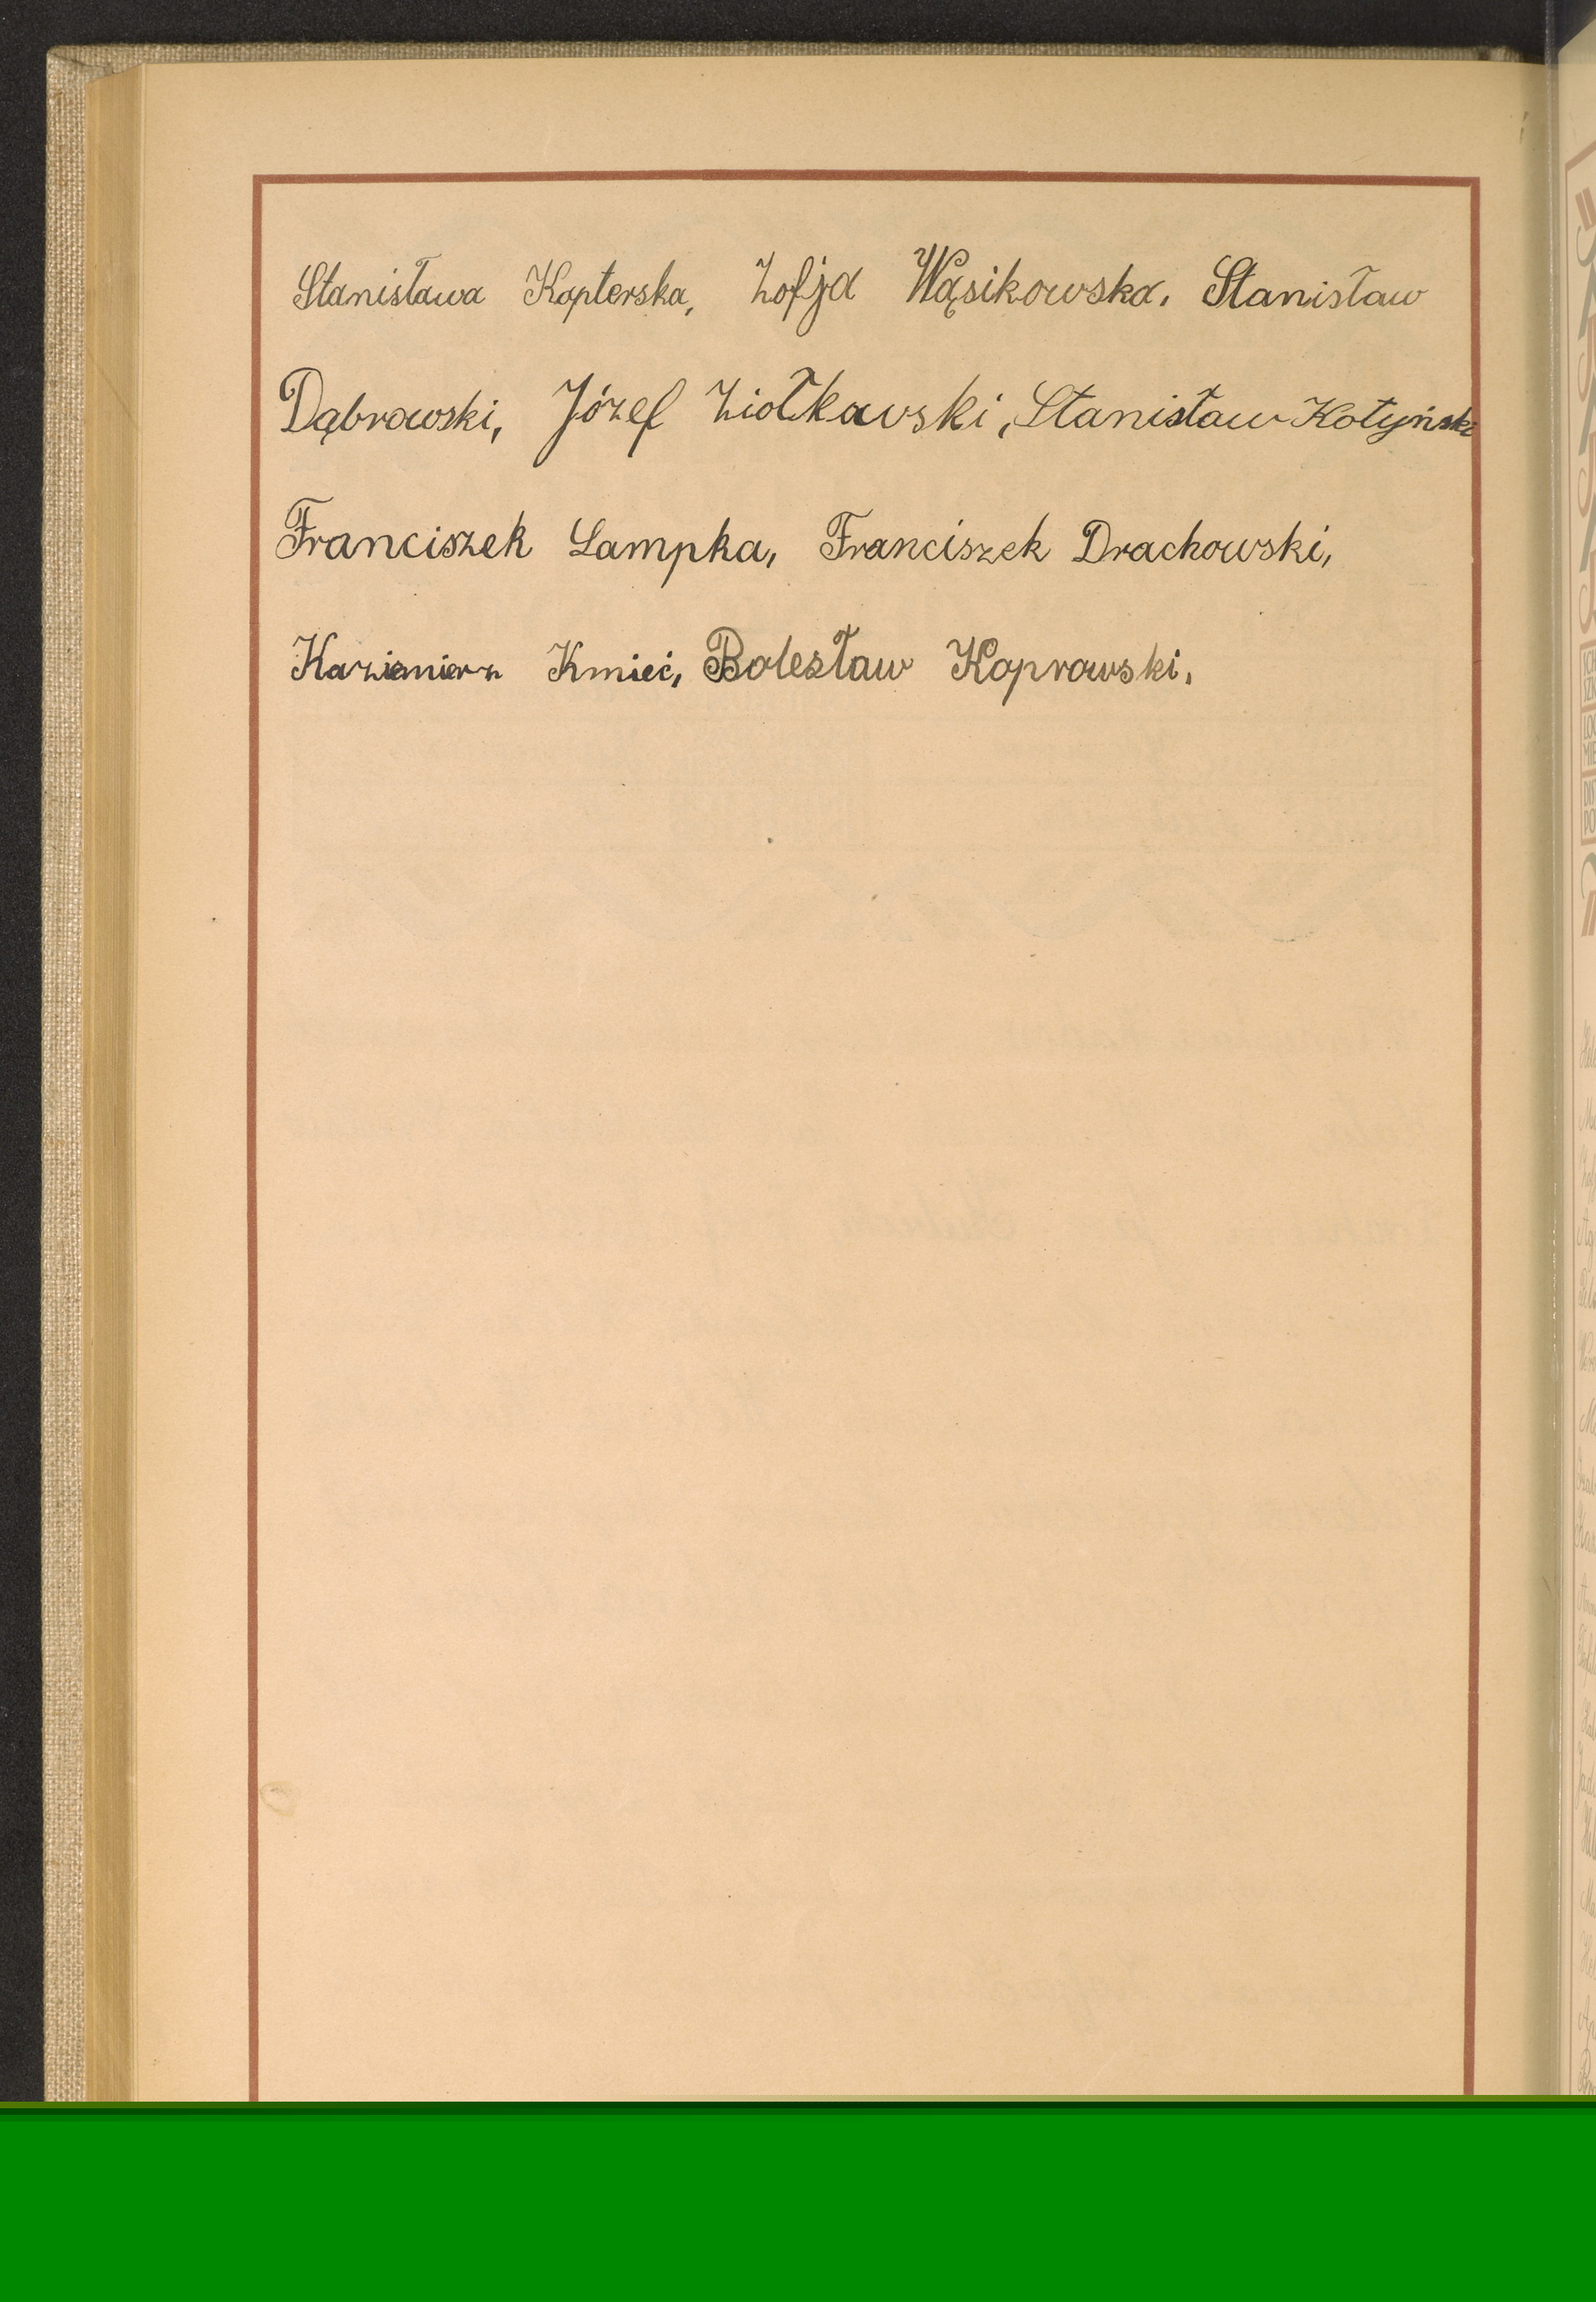 Stanisława Kapterska, Zofja Wąsikowska, Stanisław
Dąbrowski, Józef Ziołkowski, Stanisław Kotyński
Franciszek Lampka, Franciszek Drachowski,
Kazimierz Kmieć, Bolesław Koprowski,